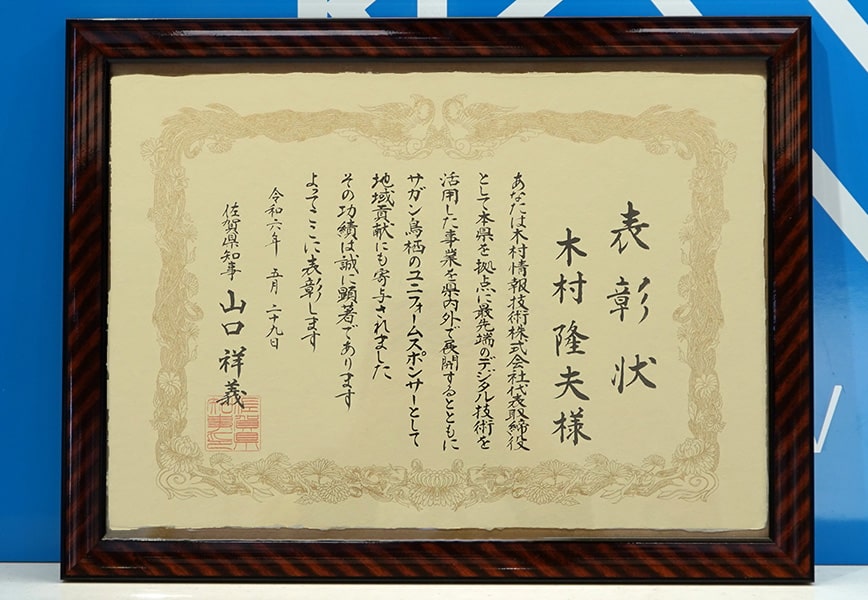 表彰状
木村隆夫様
あなたは木村情報技術株式会社代表取締役
として本県を拠点に最先端のデジタル技術を
活用した事業を県内外で展開するとともに
サガン鳥栖のユニフォームスポンサーとして
地域貢献にも寄与されました
その功績は誠に顕著であります
よってここに表彰します
令和六年 五月 二十九日
佐賀県知事 山口祥義
佐賀県
知事之印